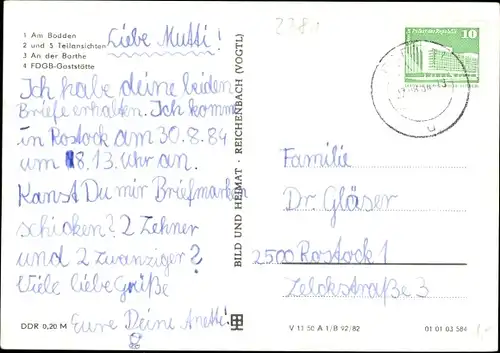 1 Am Bodden
2 und 5 Teilansichten
3 An der Barthe
4 FDGB-Gaststätte
Liebe Mutti!
Ich habe deine beiden
Briefe erhalten. Ich komme
in Rostock am 30.8.84
um 18.13. Uhr an.
Kanst Du mir Briefmark
schicken? 2 Zehner
und 2 zwanziger?
Viele liebe Grüße
Eure Deine Anetti!
DDR 0,20 M
BILD UND HEIMAT · REICHENBACH (VOGTL)
10
Familie
Dr. Gläser
2500 Rostock 1
Zelckstraße 3
V 11 50 A 1/B 92/82
01 01 03 584